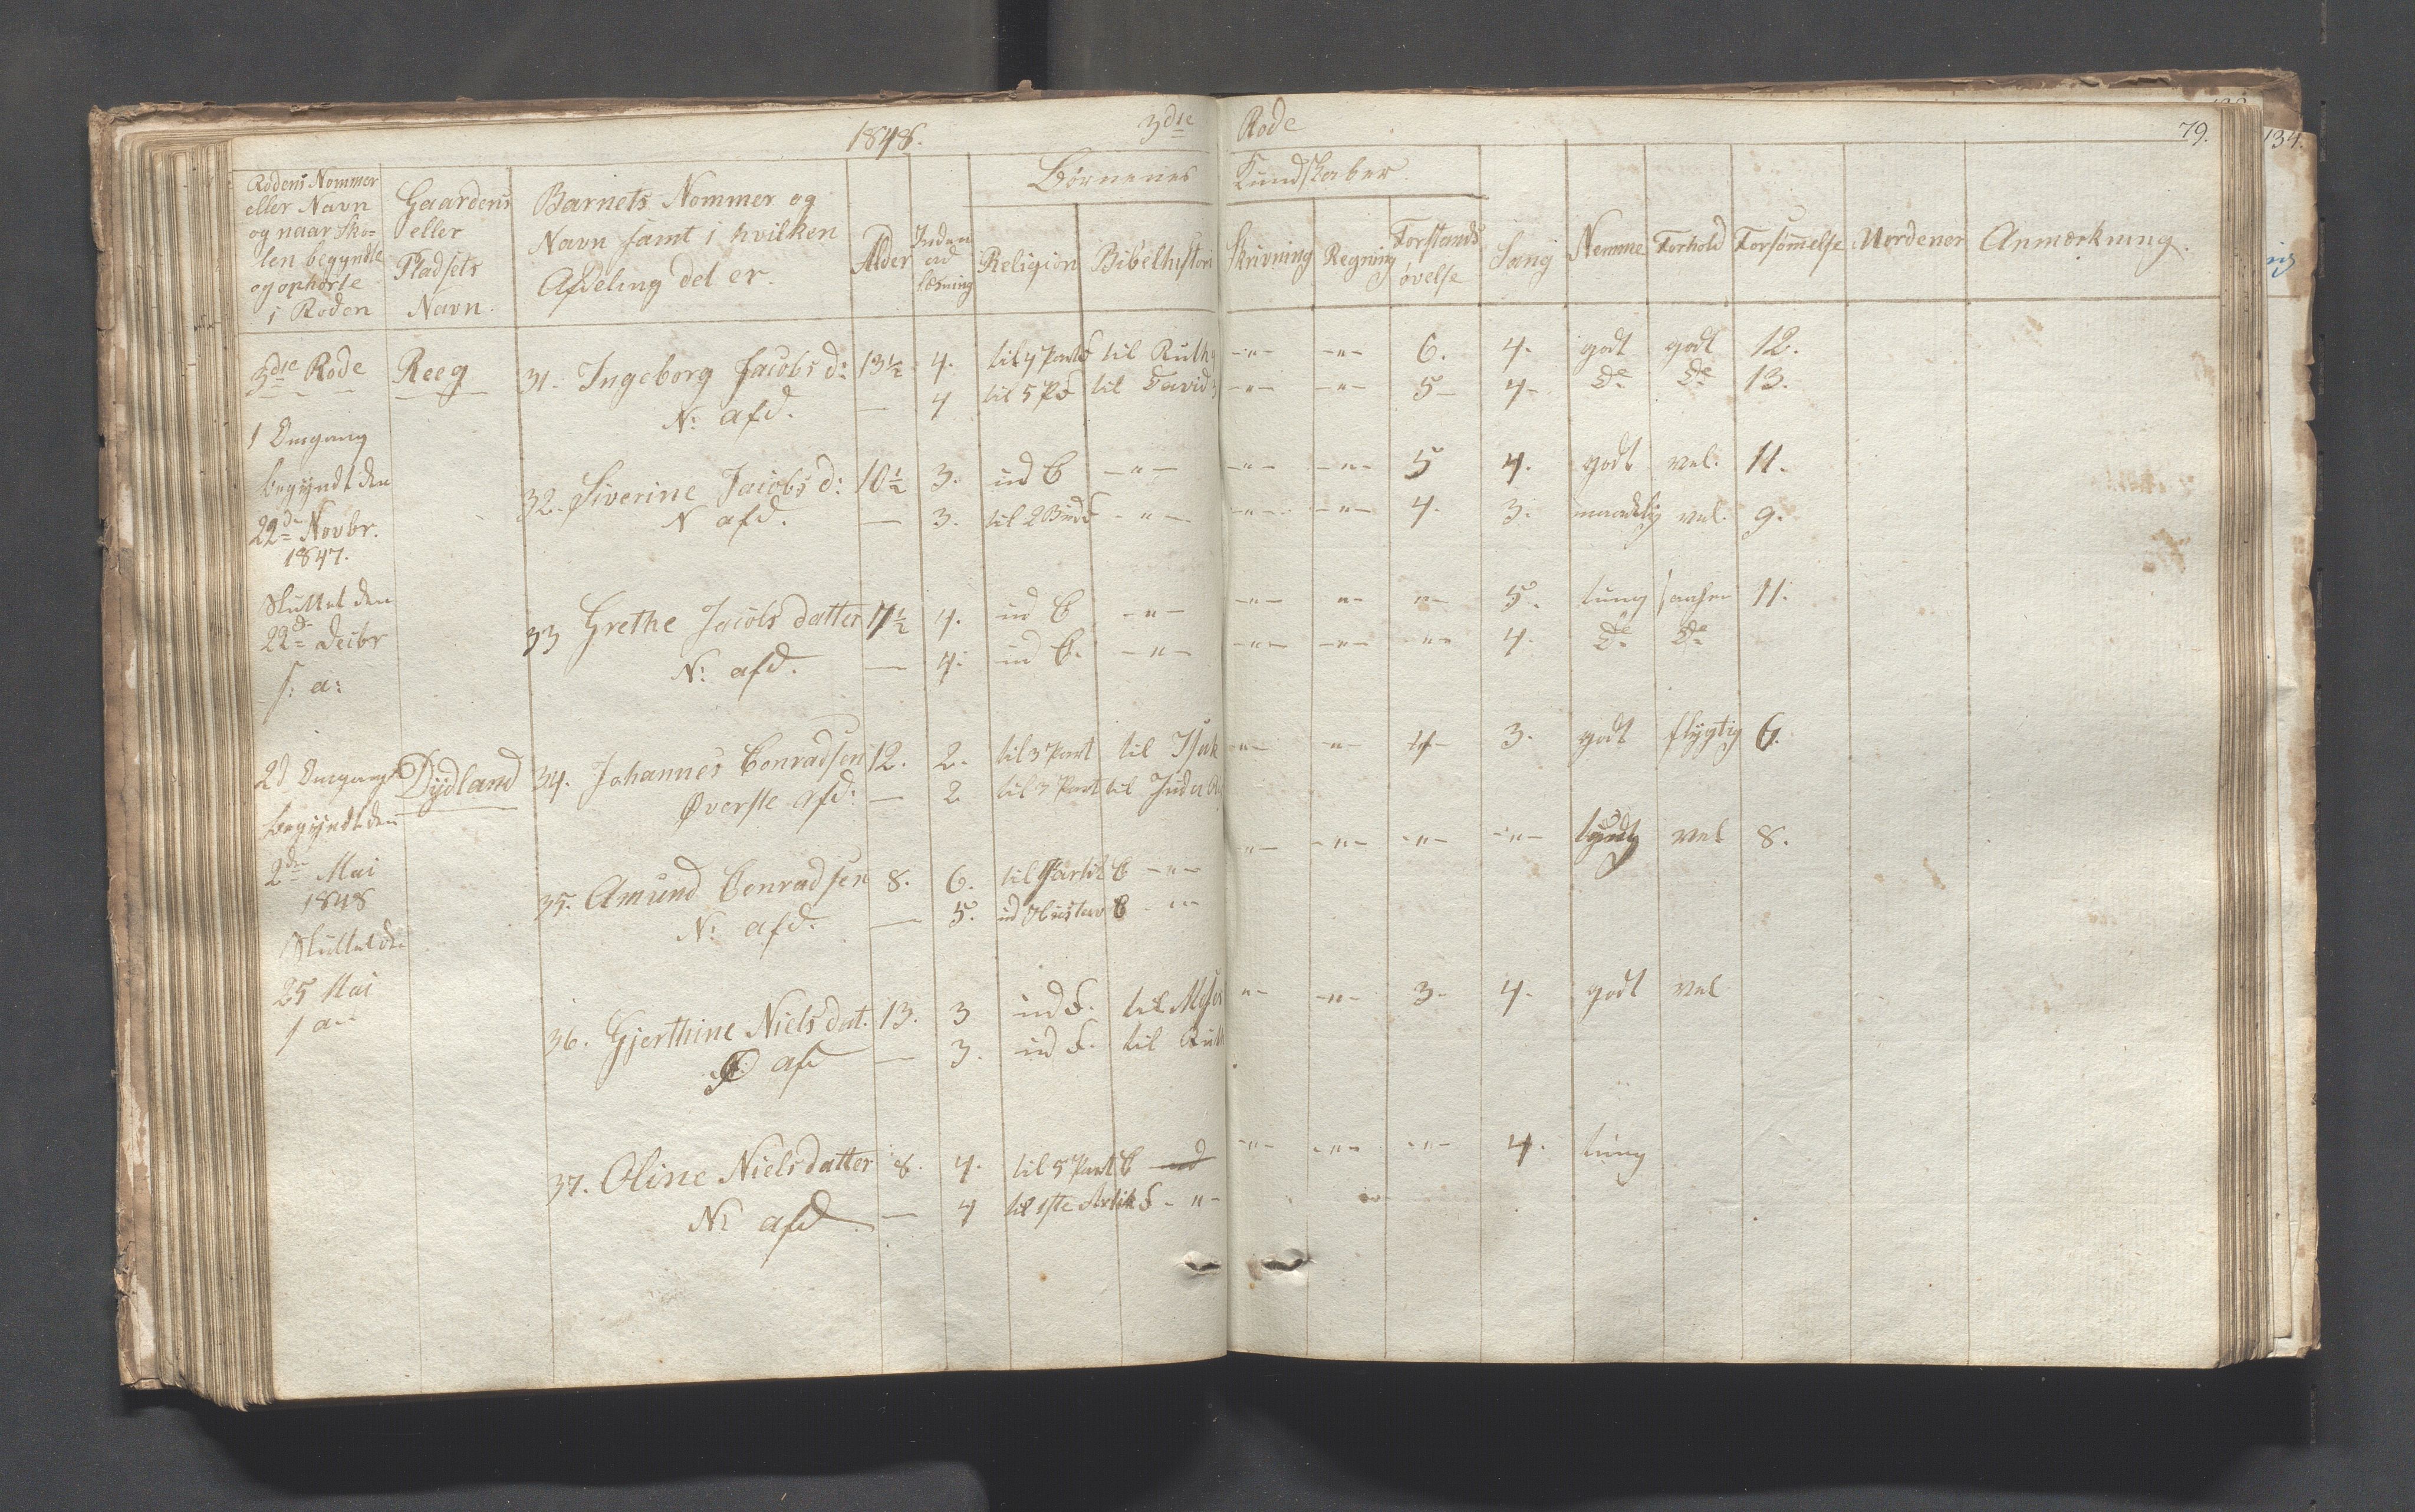 1848. 3die Rode 79.
134.
Rodens Nommer eller Navn og naar Sko= len begyndte og ophørte i Roden
Gaardens eller Pladsets Navn.
Barnets Nommer og Navn samt i hvilken Afdeling det er.
Alder
Inden ad læsning
Børnenes Kundskaber.
Religion
Bibelhistori
Skrivning
Regning
Forstands øvelse
Sang
Nemme
Forhold
Forsømmelse
Anmærkning.
3die Rode Reeg 31. Ingeborg Jacobs d: 13½ 4. til 4 Part F til Ruth -"- -"- 6. 4. godt godt 12.
N: afd. — 4 til 5 P F til David -"- -"- 5- 4- Do Do 13.
1 Omgang
begyndt den
22de Novbr.
1847.
32. Siverine Jacobs d: 10½ 3. ud C -"- -"- -"- 5 4. godt vel. 11.
N afd. — 3. til 2 Bud F -"- -"- -"- 4. 3. maadelig vel. 9.
Sluttet den
22de Decbr
s: a:
33 Grethe Jacobs datter 11½ 4. ud C -"- -"- -"- -"- 5. tung 11.
N: afd. — 4. ud C. -"- -"- -"- -"- 4. Do Do
2d Omgang Dydland 34. Johannes Conradsen 12. 2. til 3 Part til Isak -"- -"- 4- 3. godt flygtig 6.
Øverste afd: — 2 til 3 Part til
begyndt den
2den Mai
1848
35. Amund Conradsen 8. 6. C -"- -"- -"- -"- -"- vel 8.
N: afd. — 5. C -"-
Sluttet den
25 Mai
s a:
36. Gjerthine Niels dat. 13. 3 ud F. til Moses "- -"- 3- 4. godt vel
Ø afd — 3. ud F. til Ruth
37. Oline Nielsdatter 8. 4. til 5 Part C -"- -"- -"- 4. tung
N: afd — 4 til 1ste Artik F -"-